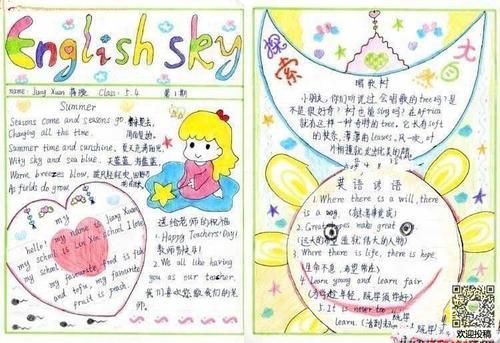 English sky
name: Jiang Xuan 蒋璇 Class: 5.4 第1期
Summer
Seasons come and seasons go,
Changing all the time.
Summer time and sunshine,
Wity sky and sea blue.
Warm breezes blow,
As fields do grow.
hello! my name is Jiang Xuan
my school is Lin Xin school I love
my school.
my favourite food is fish
and tofu, my favourite
fruit is peach.
送给老师的祝福
1. Happy Teachers' Day!
教师节快乐!
2. We all like having
you as our teacher.
我们喜欢您做我们的老
师。
探索
大
唱歌树
小朋友,你们听说过会唱歌的tree吗?是
不是很好奇?树也能sing吗?在Africa
就有这样一种奇特的tree,它长有soft
的
leaves,
片相撞就发出优美的
英语谚语
1. Where there is a will, there
is a way. (有志者事竟成)
2. Great hopes make great
(远大的希望造就伟大的人物)
3. Where there is life, there is hope.
(生命不息,希望常在)
4. Learn young and learn fair
(为学趁年轻,既学须学好)
5. It is never too
learn. (活到老
欢迎投稿